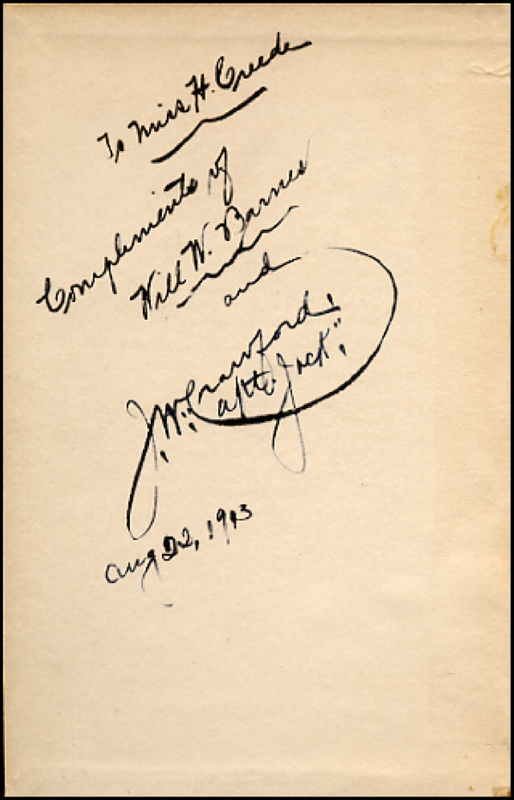 To Miss H. Creede
Compliments of
Will W. Barnes
and
J. W. Crawford.
"Capt. Jack".
Aug 22, 1913